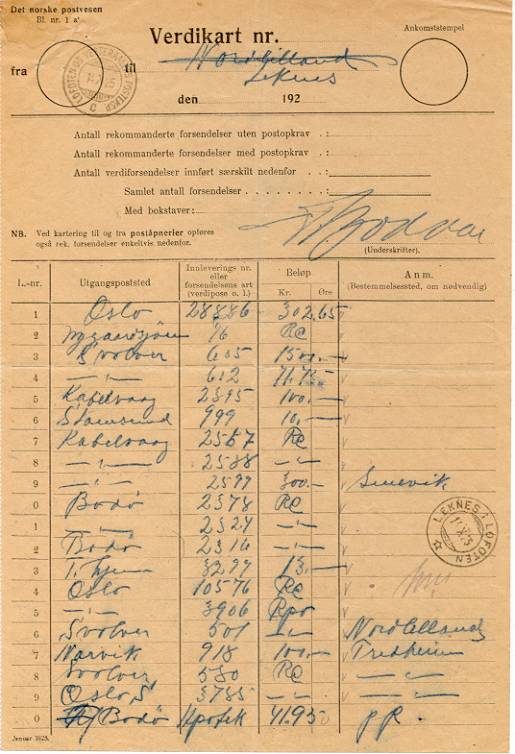 Det norske postvesen
Bl. nr. 1 a
Verdikart nr.
Ankomststempel
fra til Nordlilland
Leknes
LOFOTEN OG
den 192
Antall rekommanderte forsendelser uten postopkrav . :
Antall rekommanderte forsendelser med postopkrav . :
Antall verdiforsendelser innført særskilt nedenfor . . . :
Samlet antall forsendelser . . . . . . . . :
Med bokstaver:
NB. Ved kartering til og fra poståpnerier opføres
også rek. forsendelser enkeltvis nedenfor.
(Underskrifter).
L.-nr. Utgangspoststed Innleverings nr. eller forsendelsens art (verdipose o. l.) Beløp Kr. Øre Anm. (Bestemmelsessted, om nødvendig)
1 Oslo 28886 302.65 v
2 76 Re v
3 Svolver 605 1500.— v
4 —"— 612 71.75 v
5 Kabelvaag 2595 100.— v
6 Stamsund 999 10.— v
7 Kabelvaag 2567 Re v
8 —"— 2588 —"—
9 —"— 2599 300.— v
0 Bodö 2578 Re v
1 —"— 2527 —"—
2 Bodö 2316 —"— v
3 T.hjem 3277 13.— v
4 Oslo 10576 Re v
5 —"— 3906 v
6 Svolver 501 —"— Nordlilland
7 Narvik 918 100.— v
8 Svolver 580 Re v —"—
9 Oslo S. 3785 —"— v —"—
0 Bodö 41.95
LEKNES I LOFOTEN
Januar 1923.